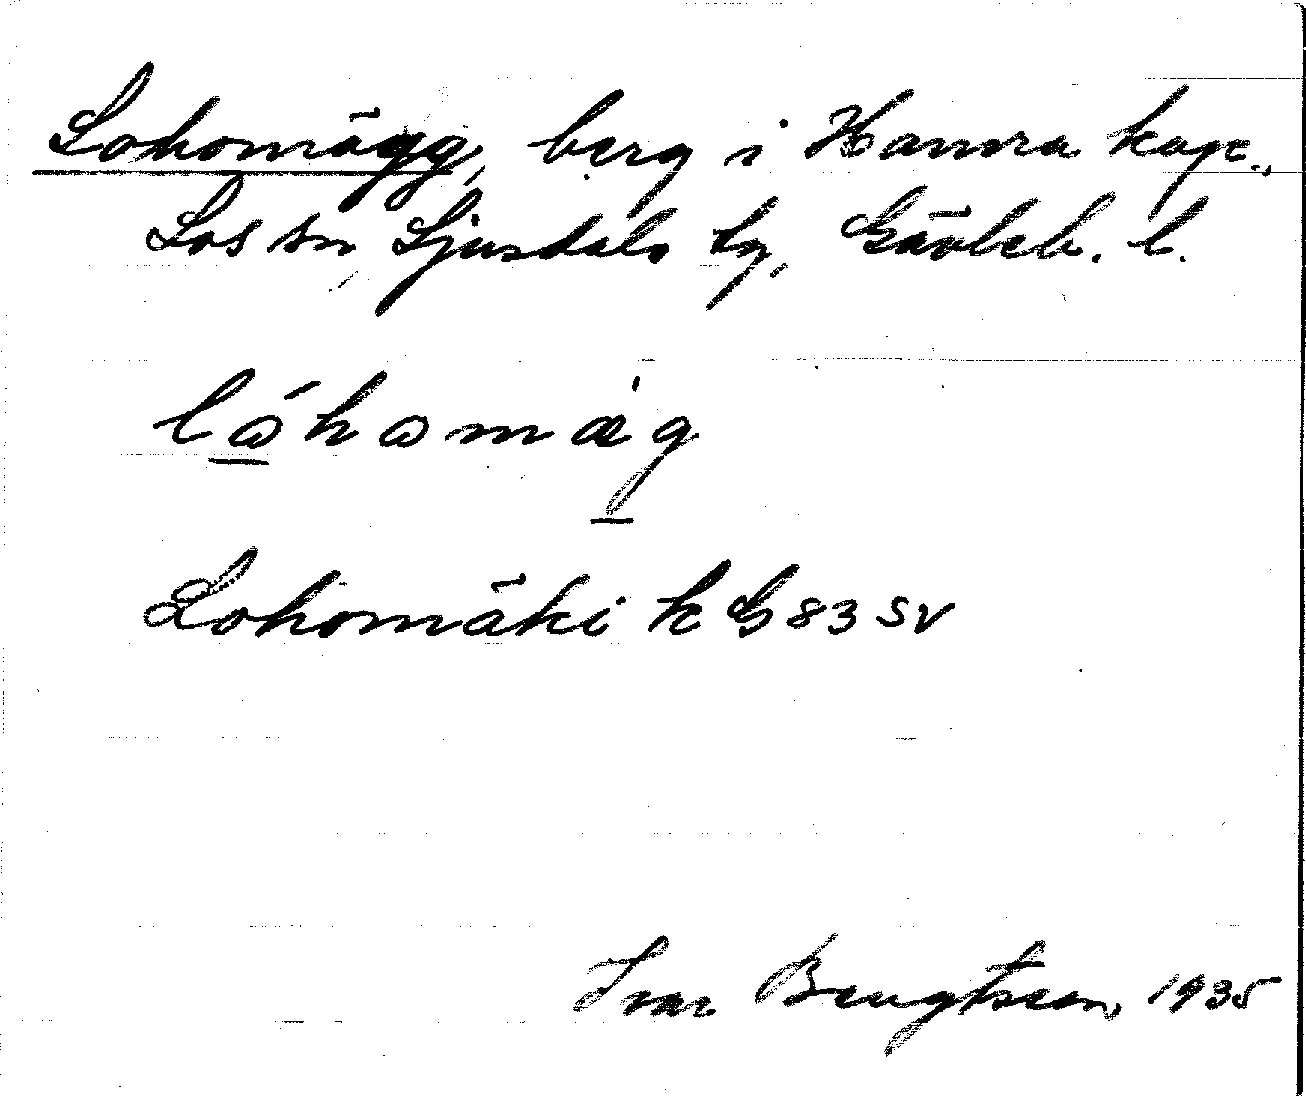 Lohomägg, berg i Hamra kap.,
Los sn Ljusdals tg, Gävleb. l.
lóhomæ̀g
Lohomäki k G 83 SV
Ivar Bengtsson, 1935